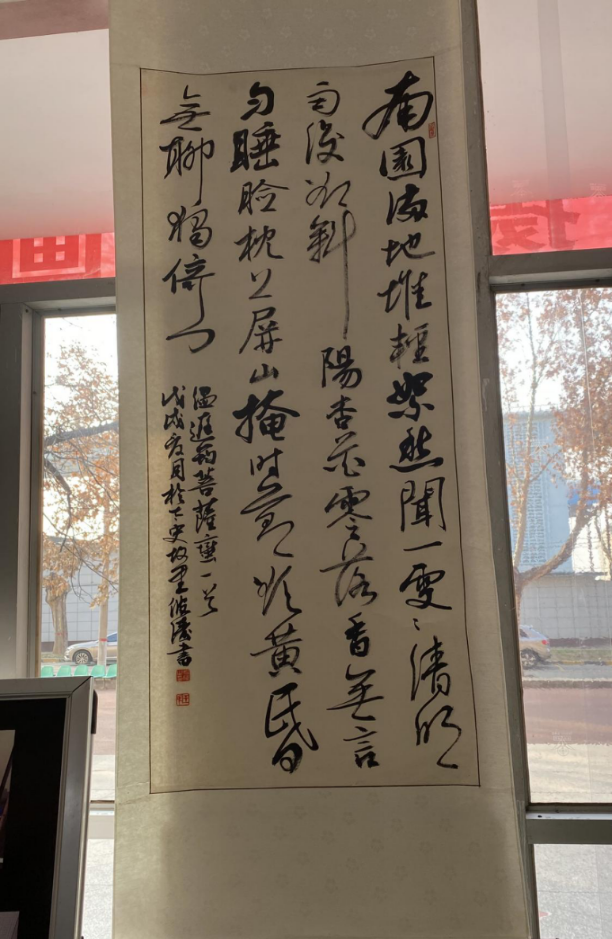 南園滿地堆輕絮愁聞一霎清明
雨後却斜陽杏花零落香無言
勻睡臉枕上屏山掩時節欲黃昏
無聊獨倚門
温庭筠菩薩蠻一首
戊戌夏月於史故里書